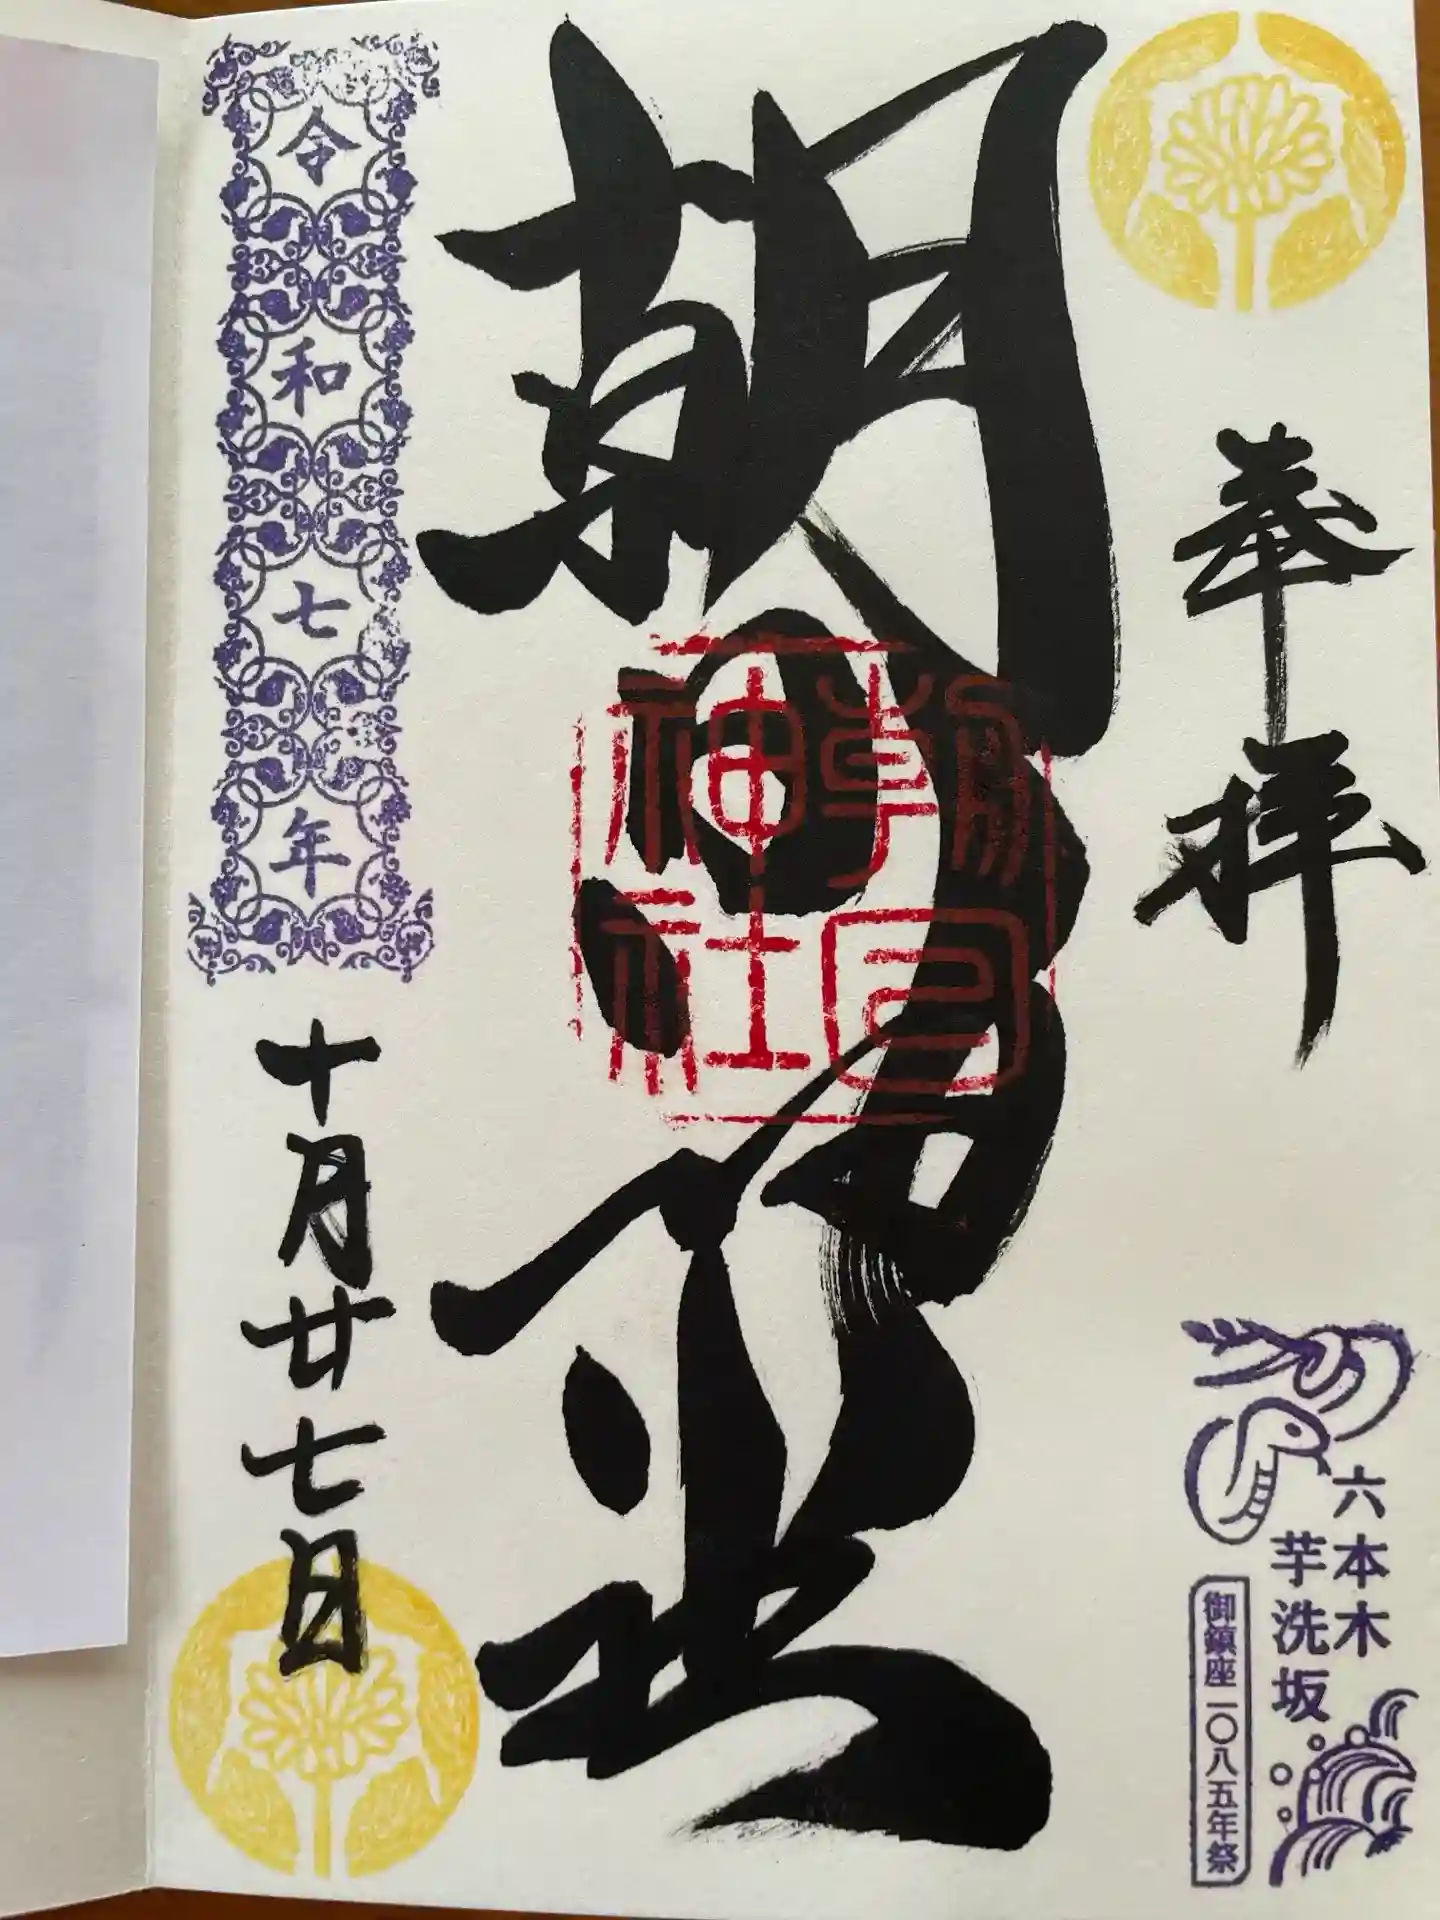 奉拝
六本木
芋洗坂
御鎮座一〇八五年祭
朝日神社
朝日神社
令和七年
十月廿七日